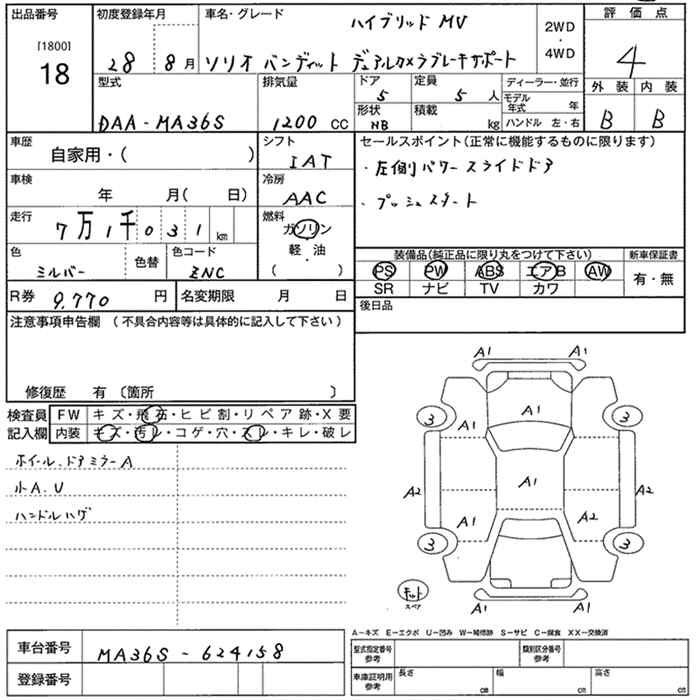 出品番号
[1800]
18
初度登録年月
28 8月
車名・グレード
ハイブリッド MV
ソリオ バンディット デュアルカメラブレーキサポート
2WD
・
4WD
評価点
4
外装 内装
B B
型式
DAA-MA36S
排気量
1200 CC
ドア
5
定員
5 人
形状
HB
積載
kg
ディーラー・並行
モデル年式 年
ハンドル 左・右
車歴
自家用・( )
シフト
IAT
車検
年 月( 日)
冷房
AAC
走行
7万1千031 km
燃料
ガソリン
軽・油
( ・ )
色
シルバー
色替
色コード
ZNC
セールスポイント(正常に機能するものに限ります)
・圧倒 パワースライドドア
・プッシュスタート
装備品(純正品に限り丸をつけて下さい)
新車保証書
PS PW ABS エアB AW
SR ナビ TV カワ
有・無
R券 9,770 円
名変期限 月 日
後日品
注意事項申告欄 (不具合内容等は具体的に記入して下さい)
修復歴 有〔箇所 〕
検査員記入欄
FW キズ・飛石・ヒビ割・リペア跡・X要
内装 キズ・汚レ・コゲ・穴・スレ・キレ・破レ
ホイール、ドアミラーA
小A、U
ハンドルハゲ
A1 A1
3 A1 3
A1 A1
A2 A1 A2
A1 A2
3 3
キット
スペア
A1 A1
A-キズ E-エクボ U-凹み W-補修跡 S-サビ C-腐食 XX-交換済
車台番号
MA36S-624158
登録番号
型式指定番号 参考
類別区分番号 参考
車庫証明用 参考
長さ cm
幅 cm
高さ cm